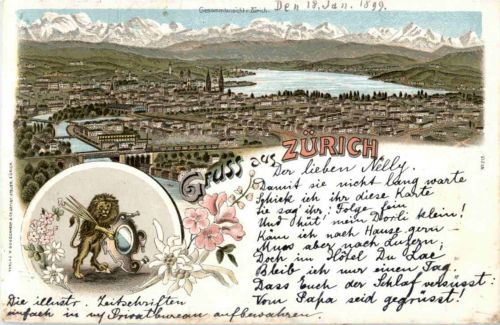 Gesammtansicht v. Zürich.
Den 18. Jan. 1899.
Gruss aus ZÜRICH
Der lieben Nelly.
Damit sie nicht lang warte
Schick ich ihr diese Karte
Sie sag ihr: Folge fein
Und hüt mein Dorli klein!
Käm ich nach Hause gern –
Muss aber nach Luzern;
Doch im Hôtel Du Lac
Bleib ich nur einen Tag.
Dass Euch der Schlaf versüsst:
Vom Papa seid gegrüsst!
Die illustr. Zeitschriften
einfach in m/ Privatbureau aufbewahren.